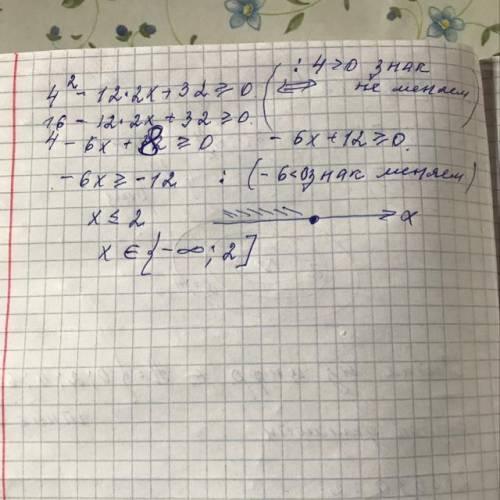 4² - 12·2x + 32 ≥ 0 (: 4>0 знак не меняем)
⟺
16 - 12·2x + 32 ≥ 0.
4 - 6x + 8 ≥ 0 - 6x + 12 ≥ 0.
- 6x ≥ -12 : (-6<0 знак меняем)
x ≤ 2 x
x ∈ {-∞; 2]